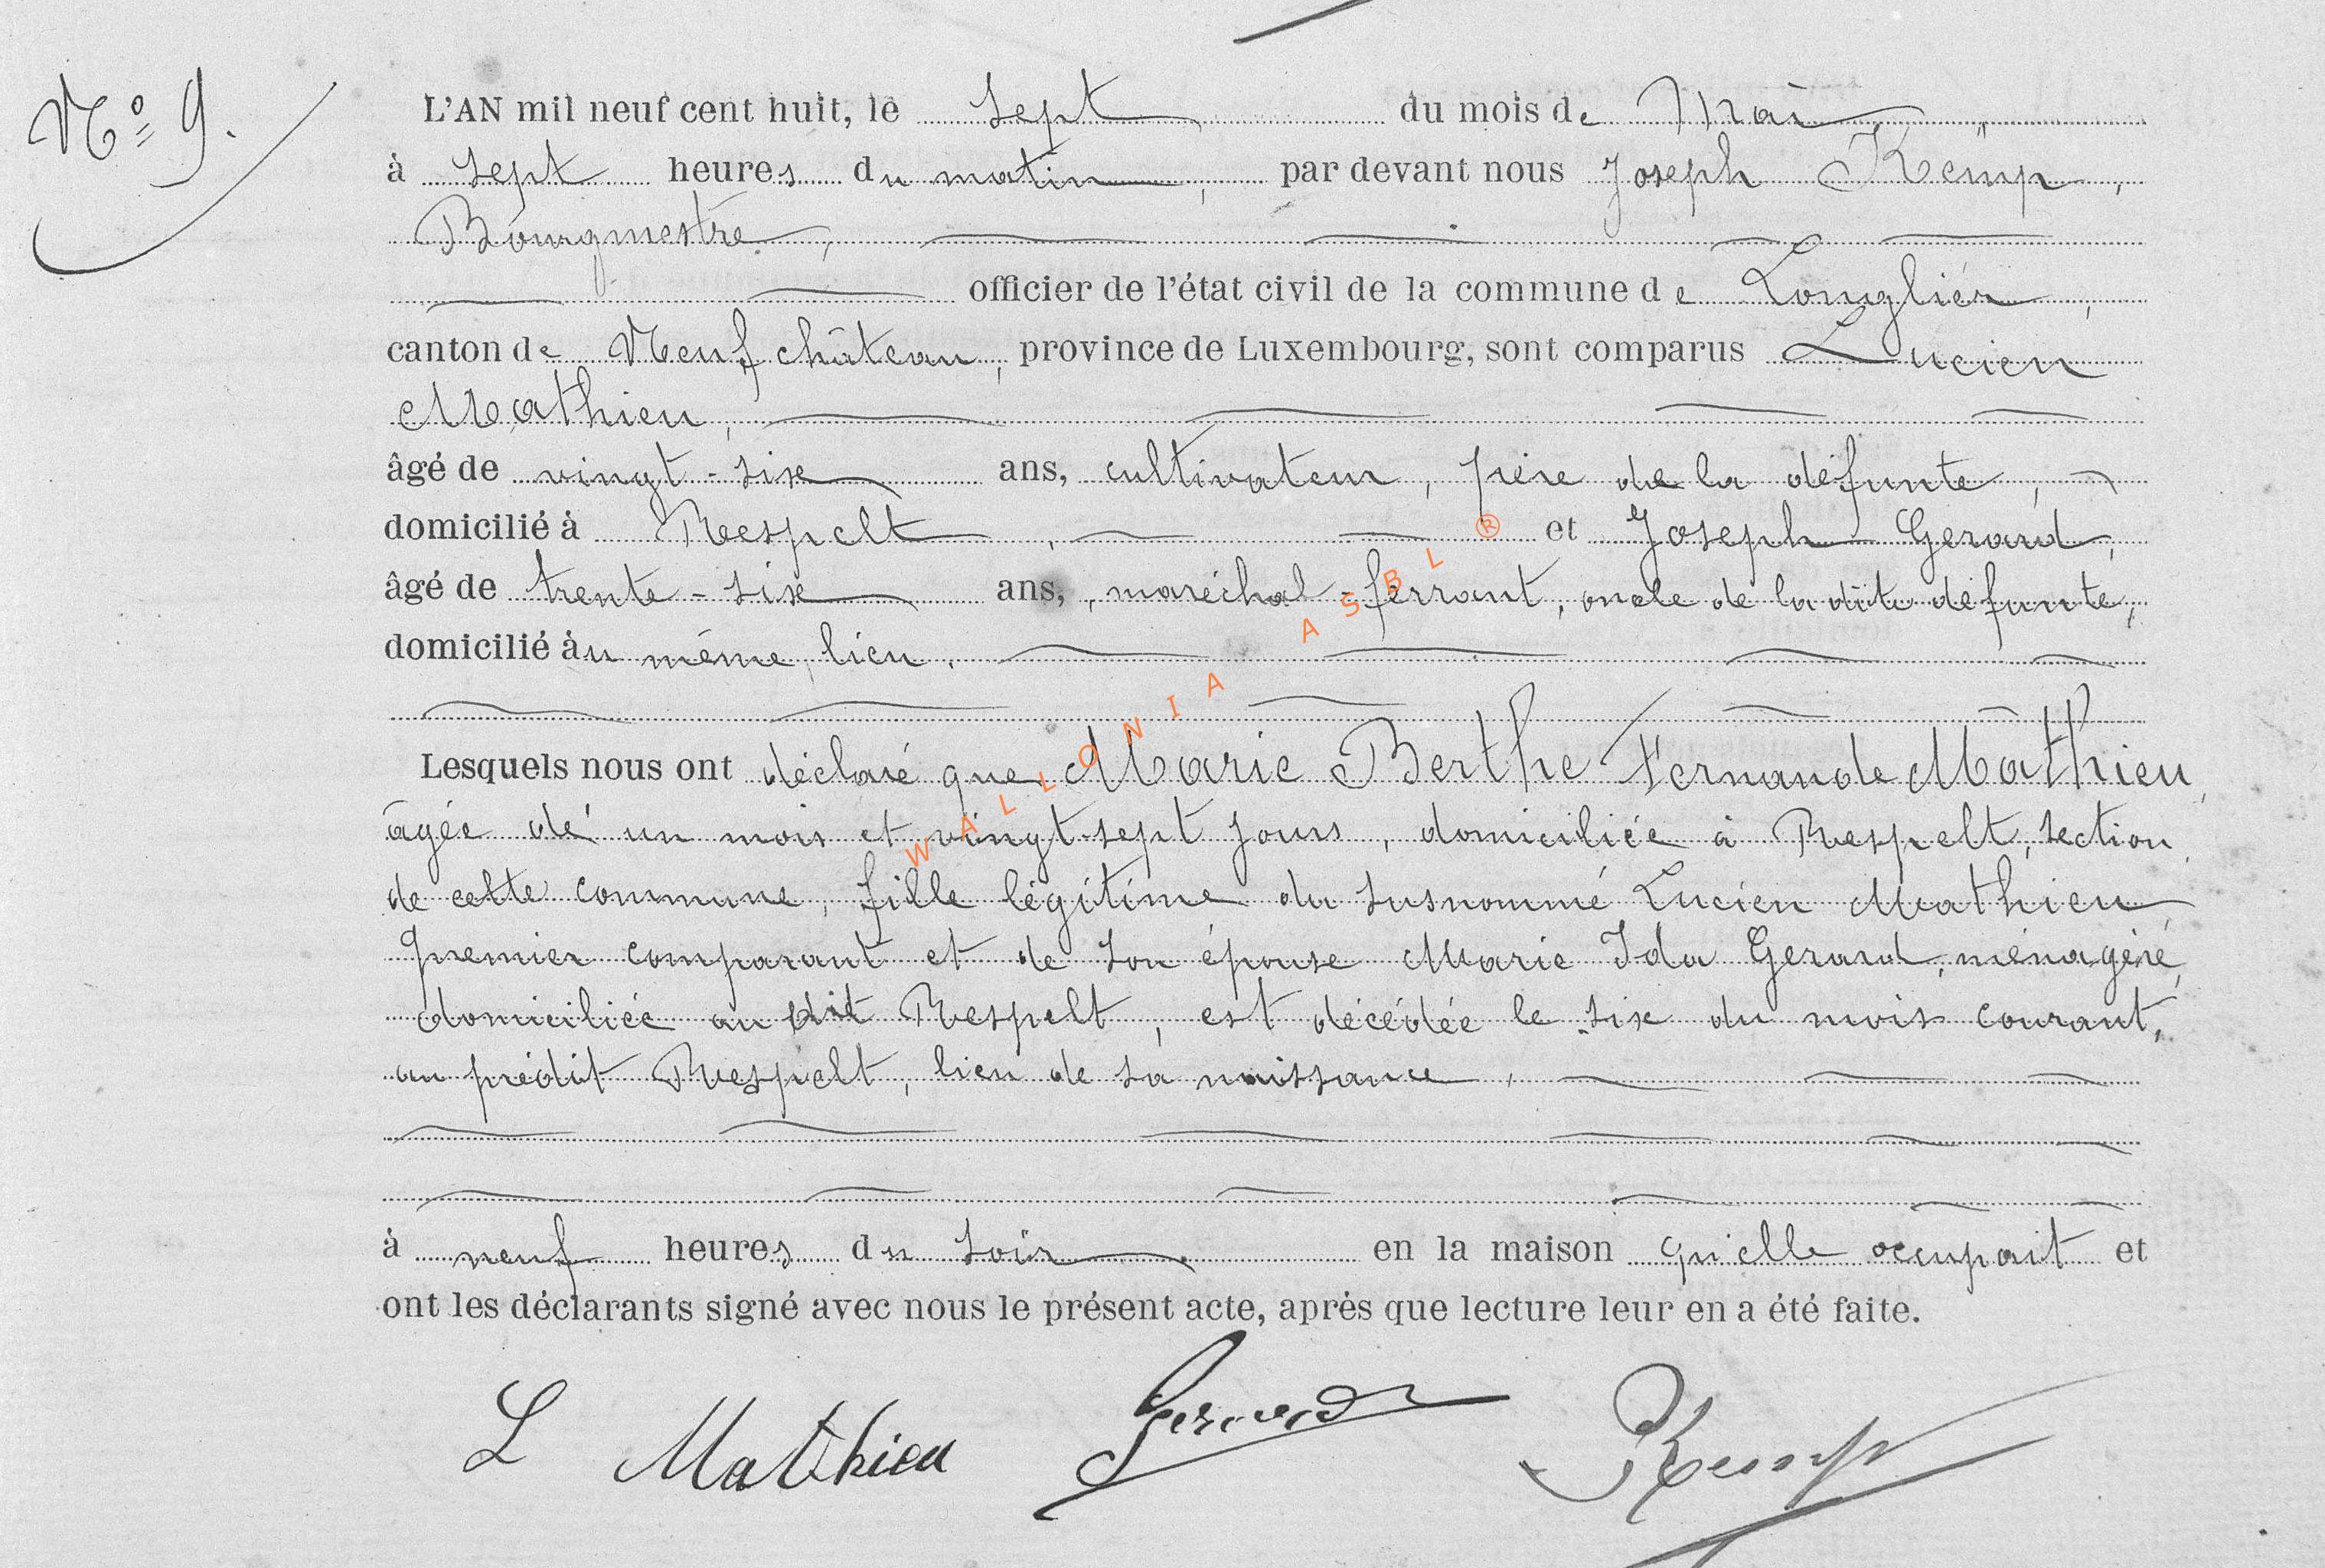 Nº 9.
L'AN mil neuf cent huit, le sept du mois de Mai
à sept heures du matin, par devant nous Joseph Kemp,
Bourgmestre,
officier de l'état civil de la commune de Longlier,
canton de Neufchâteau, province de Luxembourg, sont comparus Lucien
Mathieu,
âgé de vingt-six ans, cultivateur, père de la défunte,
domicilié à Respelt, et Joseph Gerard,
âgé de trente-six ans, maréchal-ferrant, oncle de la dite défunte,
domicilié au même lieu.
Lesquels nous ont déclaré que Marie Berthe Fernande Mathieu,
âgée de un mois et vingt-sept jours, domiciliée à Respelt, section
de cette commune, fille légitime du susnommé Lucien Mathieu
premier comparant et de son épouse Marie Ida Gerard, ménagère,
domiciliée au dit Respelt, est décédée le six du mois courant,
au prédit Respelt, lieu de sa naissance,
à neuf heures du soir en la maison qu'elle occupait et
ont les déclarants signé avec nous le présent acte, après que lecture leur en a été faite.
L Mathieu Gerard Kemp
WALLONIA ASBL ®